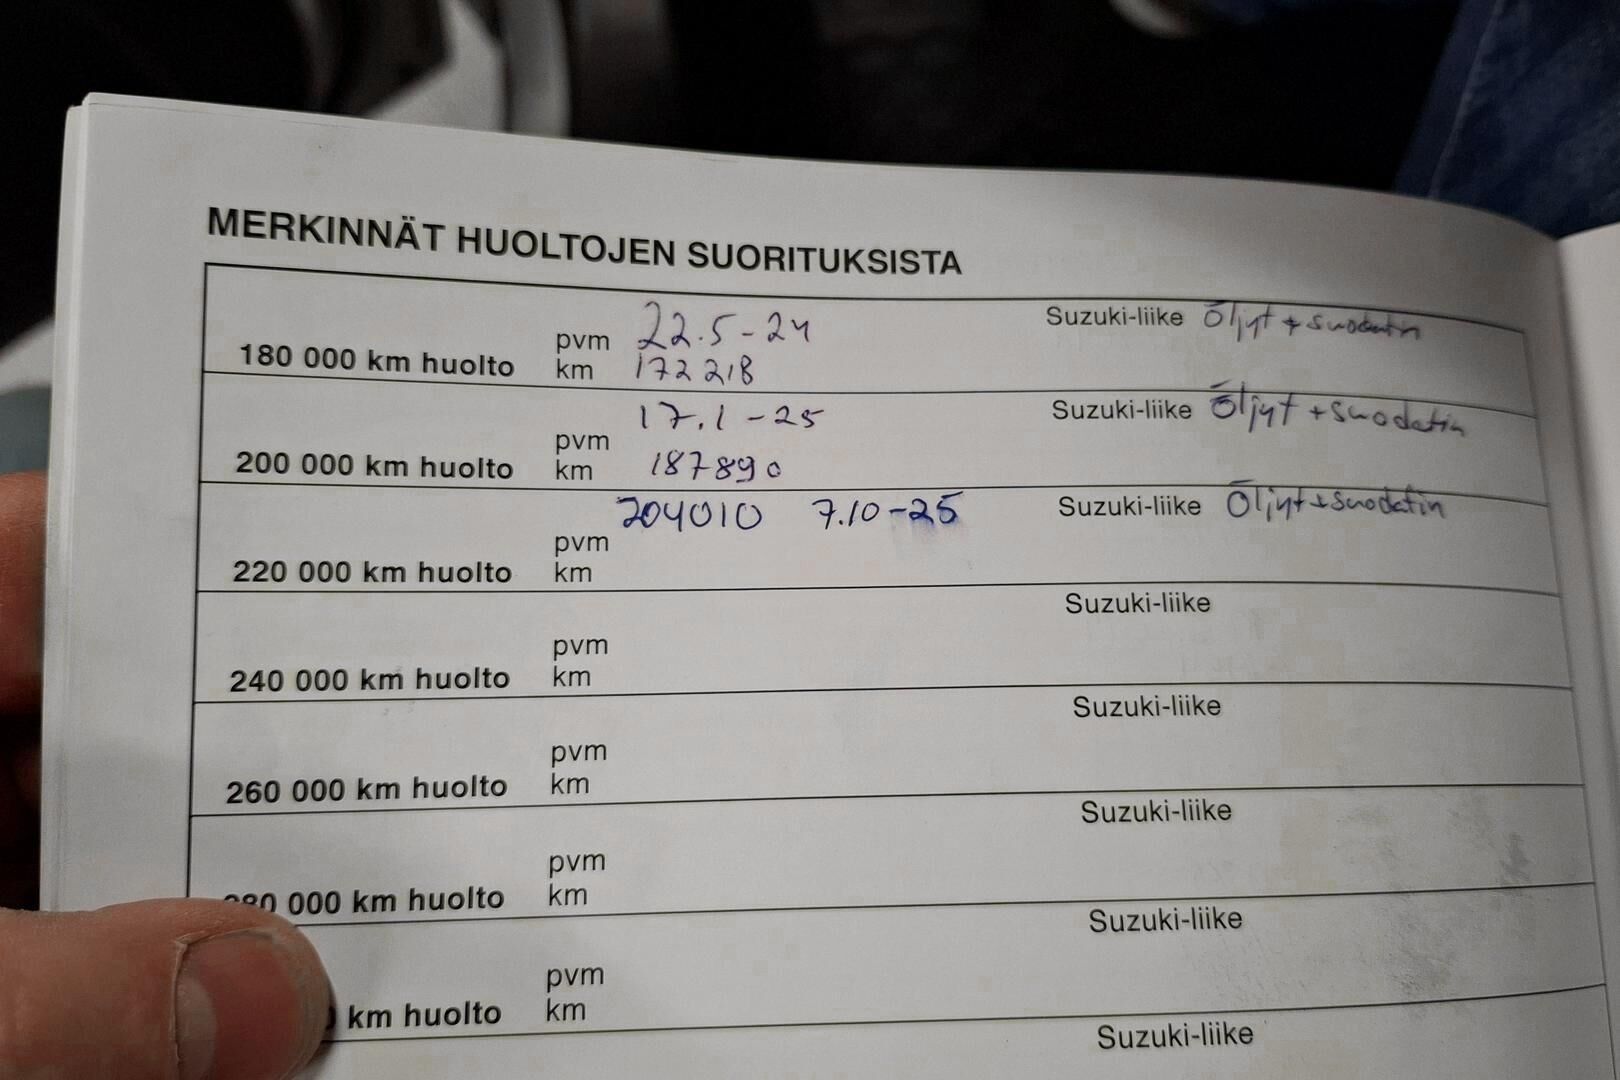 MERKINNÄT HUOLTOJEN SUORITUKSISTA
180 000 km huolto pvm 22.5-24 Suzuki-liike Öljyt + suodatin
km 172218
200 000 km huolto pvm 17.1-25 Suzuki-liike Öljyt + suodatin
km 187890
204010 7.10-25 Suzuki-liike Öljyt + suodatin
220 000 km huolto pvm
km
Suzuki-liike
240 000 km huolto pvm
km
Suzuki-liike
260 000 km huolto pvm
km
Suzuki-liike
80 000 km huolto pvm
km
Suzuki-liike
km huolto pvm
km
Suzuki-liike